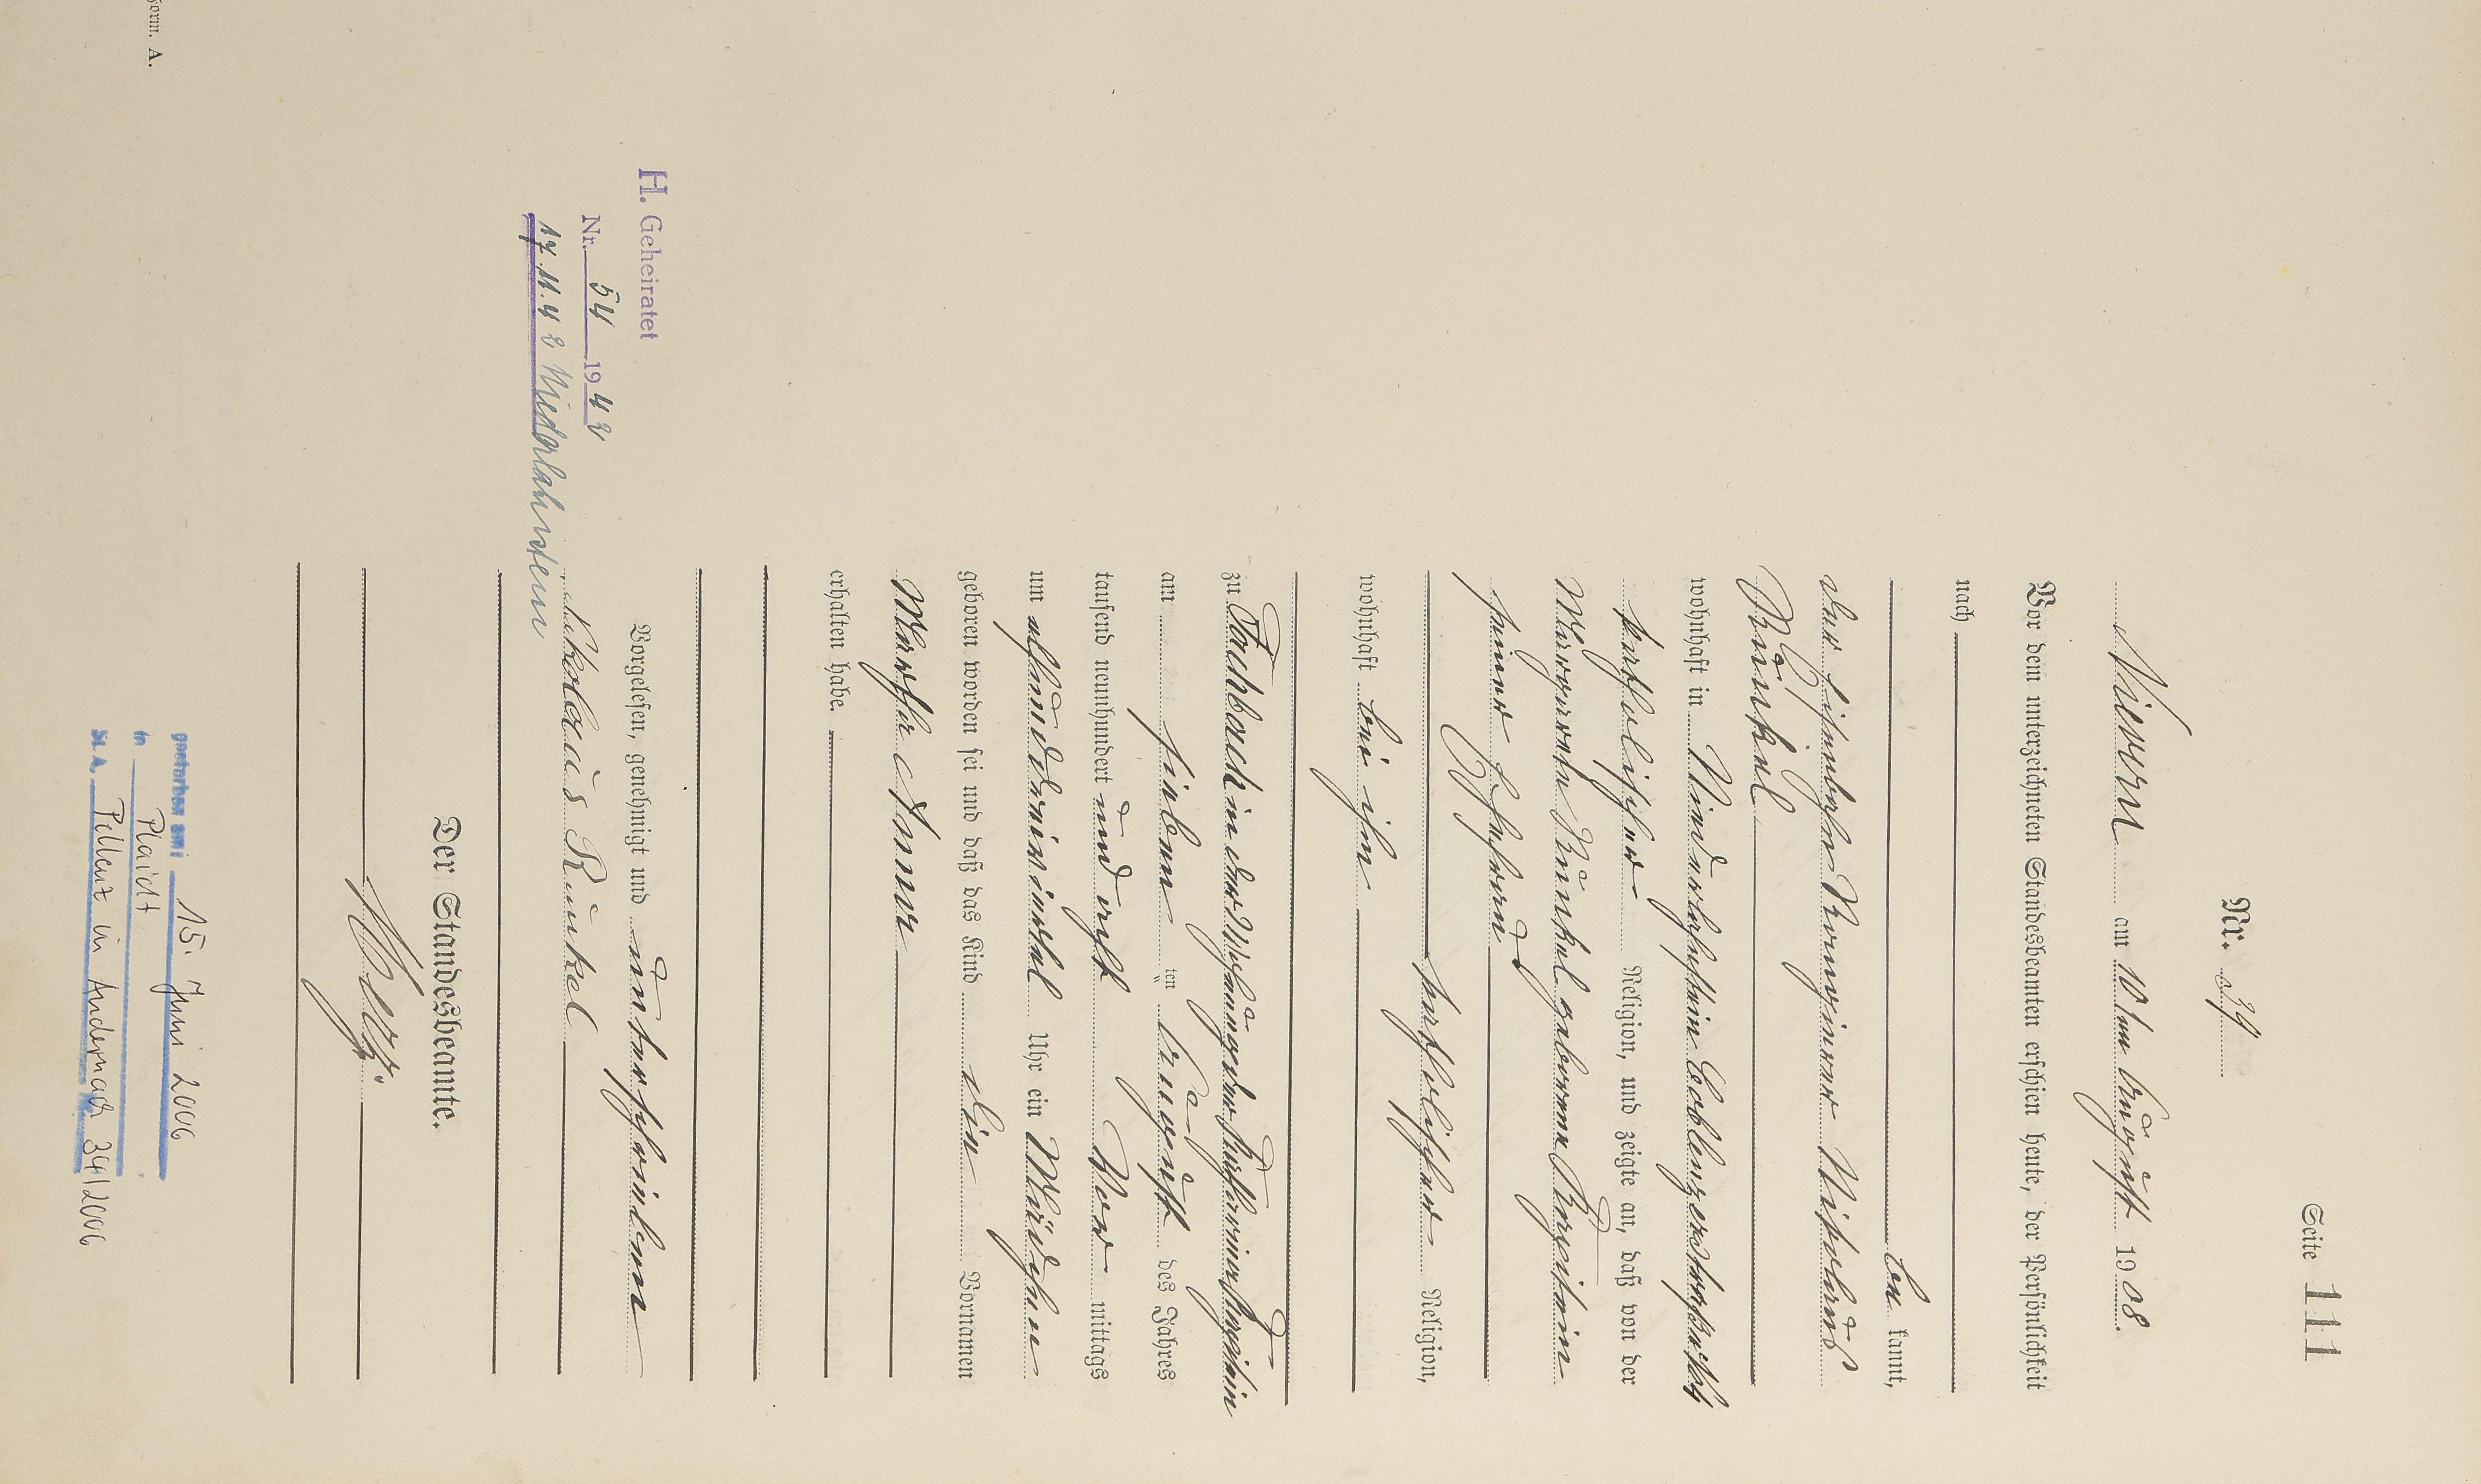 Seite 111
Nr. 39
Nievern am 10ten August 1908.
Vor dem unterzeichneten Standesbeamten erschien heute, der Persönlichkeit
nach
be kannt,
der Eisenbahn Rangierer Nikolaus
Rünkel
wohnhaft in Niederlahnstein Coblenzerstraße
katholischer Religion, und zeigte an, daß von der
Margareta Rünkel geborene
seiner Ehefrau
katholischer Religion,
wohnhaft bei ihm
zu Fachbach in der Wohnung der
am sieben ten August des Jahres
tausend neunhundert und acht Vor mittags
um elfeindreiviertel Uhr ein Mädchen
geboren worden sei und daß das Kind die Vornamen
Martha Anna
erhalten habe.
Vorgelesen, genehmigt und unterschrieben
Nikolaus Rünkel
Der Standesbeamte.
H. Geheiratet
Nr. 54 1942
17.11.42 Niederlahnstein
gestorben am: 15. Juni 2006
in Plaidt
St. A. Pellenz in Andernach 34/2006
Form. A.